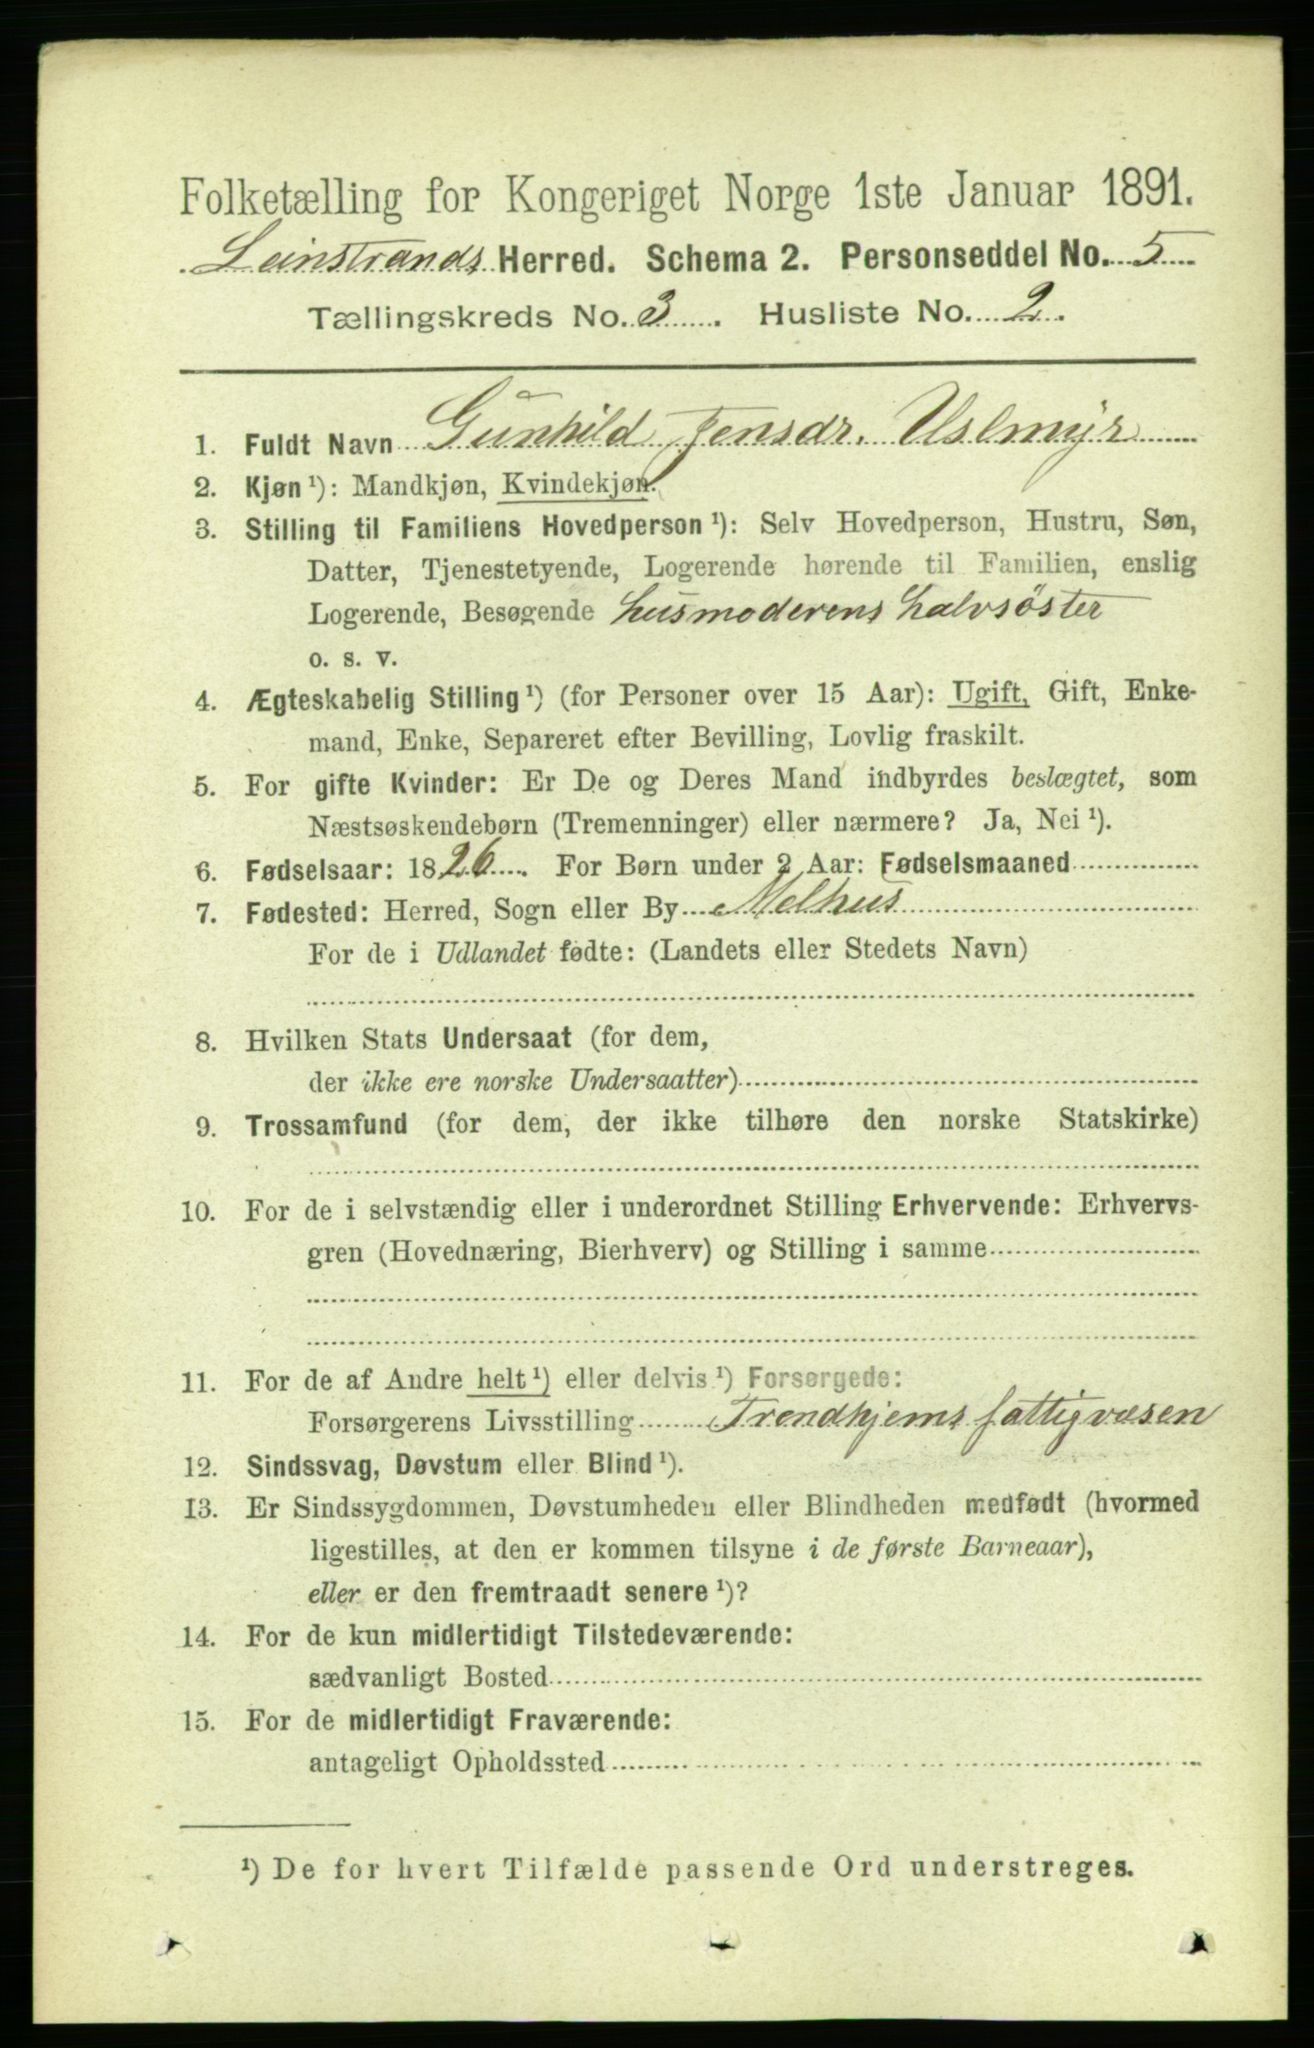 Folketælling for Kongeriget Norge 1ste Januar 1891.
Leinstrands Herred. Schema 2. Personseddel No. 5
Tællingskreds No. 3. Husliste No. 2.
1. Fuldt Navn Gunhild Jensdr. Uslmyr
2. Kjøn ¹): Mandkjøn, Kvindekjøn.
3. Stilling til Familiens Hovedperson ¹): Selv Hovedperson, Hustru, Søn,
Datter, Tjenestetyende, Logerende hørende til Familien, enslig
Logerende, Besøgende husmoderens halvsöster
o. s. v.
4. Ægteskabelig Stilling ¹) (for Personer over 15 Aar): Ugift, Gift, Enke-
mand, Enke, Separeret efter Bevilling, Lovlig fraskilt.
5. For gifte Kvinder: Er De og Deres Mand indbyrdes beslægtet, som
Næstsøskendebørn (Tremenninger) eller nærmere? Ja, Nei ¹).
6. Fødselsaar: 1826. For Børn under 2 Aar: Fødselsmaaned
7. Fødested: Herred, Sogn eller By Melhus
For de i Udlandet fødte: (Landets eller Stedets Navn)
8. Hvilken Stats Undersaat (for dem,
der ikke ere norske Undersaatter)
9. Trossamfund (for dem, der ikke tilhøre den norske Statskirke)
10. For de i selvstændig eller i underordnet Stilling Erhvervende: Erhvervs-
gren (Hovednæring, Bierhverv) og Stilling i samme
11. For de af Andre helt ¹) eller delvis ¹) Forsørgede:
Forsørgerens Livsstilling Trondhjems fattigvæsen
12. Sindssvag, Døvstum eller Blind ¹).
13. Er Sindssygdommen, Døvstumheden eller Blindheden medfødt (hvormed
ligestilles, at den er kommen tilsyne i de første Barneaar),
eller er den fremtraadt senere ¹)?
14. For de kun midlertidigt Tilstedeværende:
sædvanligt Bosted
15. For de midlertidigt Fraværende:
antageligt Opholdssted
¹) De for hvert Tilfælde passende Ord understreges.